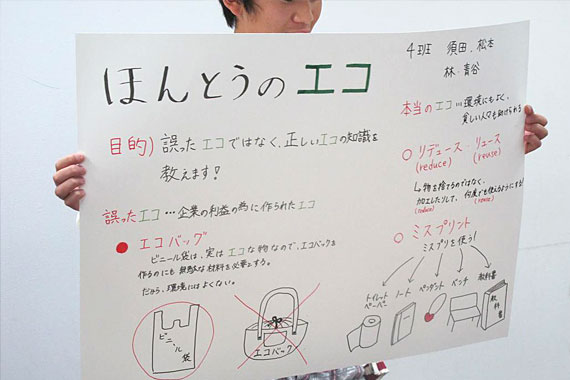 ほんとうのエコ
4班 須田、松本
林・青谷
目的) 誤ったエコではなく、正しいエコの知識を
教えます!
誤ったエコ…企業の利益の為に作られたエコ
●エコバッグ
ビニール袋は、実はエコな物なので、エコバッグを
作るのにも無駄な材料を必要とする。
だから、環境にはよくない。
ビニール袋
エコバック
本当のエコ…環境にもよく、
貧しい人々も助けられる
○リデュース・リュース
(reduce) (reuse)
↳物を捨てるのではなく、
加工したりして、何度でも使えるようにする!
(reduce) (reuse)
○ミスプリント
ミスプリを使う!
トイレット
ペーパー
ノート
ペンダント
ベンチ
教科書
教科書